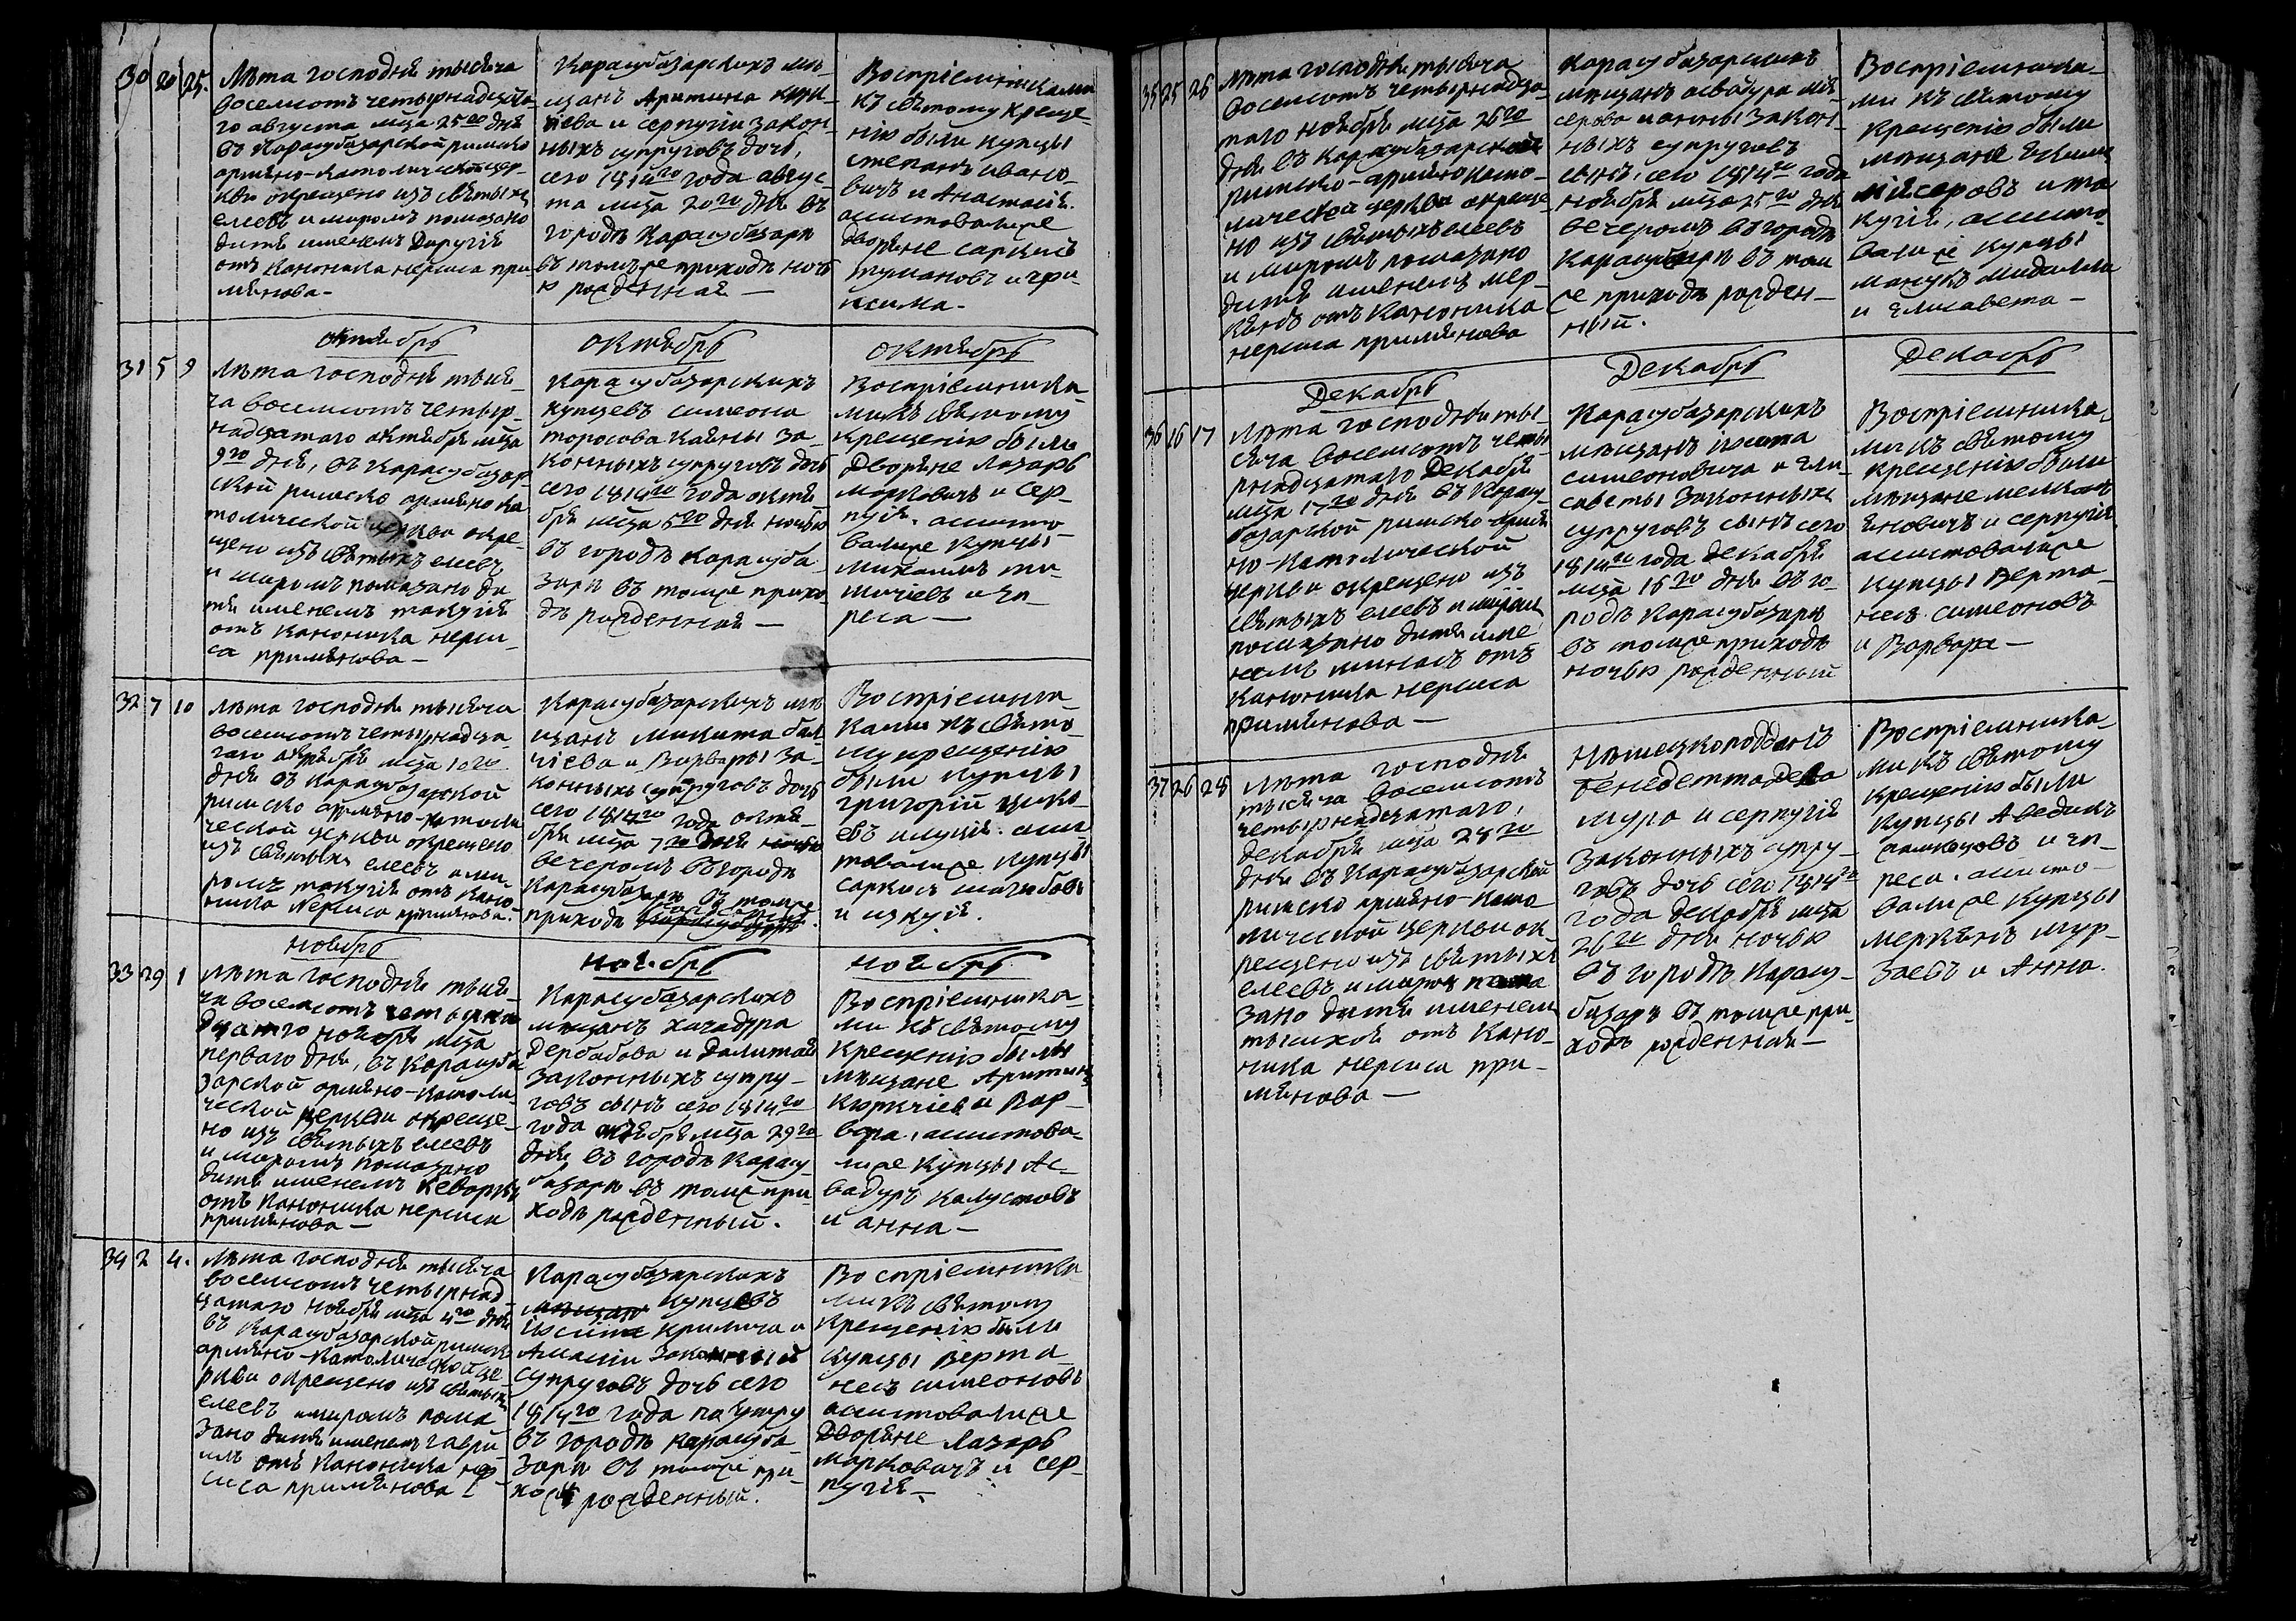 30 20 25.
Лѣта господня тысяча
восемсотъ четырнадцата-
го августа мца 25го дня
въ Карасубазарской римско
армяно-католической цер-
кви окрещено изъ святыхъ
елеевъ и миромъ помазано
дитя именемъ Диругія
отъ Каноника нерсиса при
мянова-
Карасубазарскихъ мѣ-
щанъ Аритина
и серпугіи закон-
ныхъ супруговъ дочь,
сего 1814го года авгус-
та мца 20го дня въ
городѣ Карасубазарѣ
въ томъ же приходѣ ночь
ю рожденная —
Воспріемниками
къ святому креще-
нію были купцы
степанъ ивано-
вичъ и Анастасія.
асистовали же
дворяне саркисъ
тумановъ и
-
октябрь
октябрь
октябрь
31 5 9
Лѣта господня тыся-
ча восемсотъ четыр-
надцатаго октября мца
9го дня, въ Карасубазар-
ской римско армяно ка
толической церкви окре-
щено изъ святыхъ елеевъ
и миромъ помазано ди
тя именемъ такугія
отъ Каноника нерси-
са примянова —
Карасубазарскихъ
купцевъ симеона
торосова и анны за-
конныхъ супруговъ дочь
сего 1814го года октя
бря мца 5го дня ночью
въ городѣ Карасуба-
зарѣ въ томже прихо-
дѣ рожденная —
Воспріемника-
ми къ святому
крещенію были
Дворяне Лазарь
марковичъ и Сер-
пугія. асисто-
вали же купцы
михаилъ
и
реса —
32 7 10
Лѣта господня тысяча
восемсотъ четырнадца-
таго октября мца 10го
дня въ Карасубазарской
римско армяно-католи
ческой церкви окрещено
изъ святыхъ елеевъ и ми-
ромъ такугія отъ Кано-
ника Нерсиса примянова.
Карасубазарскихъ мѣ
щанъ микита
и Варвары за-
конныхъ супруговъ дочь
сего 1814го года октя-
бря мца 7го дня ночью
вечеромъ въ городѣ
Карасубазарѣ въ томже
приходѣ
Воспріемни-
ками къ свято-
му крещенію
были купцы
григорій
и луція. асис
товали же купцы
саркисъ
и изкуія.
ноябрь
ноябрь
ноябрь
33 29 1
Лѣта господня тыся-
ча восемсотъ четырна
дцатаго ноября мца
перваго дня, въ Карасуба
зарской армяно-католи-
ческой церкви окреще-
но изъ святыхъ елеевъ
и миромъ помазано
дитя именемъ Кеворкъ
отъ Каноника нерсиса
примянова —
Карасубазарскихъ
мѣщанъ хачадура
Дербабова и
законныхъ супру-
говъ сынъ сего 1814го
года октября мца 29го
дня въ городѣ Карасу-
базарѣ въ томже при-
ходѣ рожденный.
Воспріемника-
ми къ святому
крещенію были
мѣщане Аритинъ
и Вар-
вара, асистова-
ли же купцы Ас-
вадуръ Калустовъ
и анна —
34 2 4.
Лѣта господня тысяча
восемсотъ четырнад
цатаго ноября мца 4го дня
въ Карасубазарской римско
армяно-католической це-
ркви окрещено изъ святыхъ
елеевъ и миромъ пома
зано дитя именемъ гаври
илъ отъ Каноника нер-
сиса примянова —
Карасубазарскихъ
мѣщанъ купцевъ
кримича и
законный
супруговъ дочь сего
1814го года по утру
въ городѣ Карасуба-
зарѣ въ томже при-
ходѣ рожденный.
Воспріемника
ми къ святому
крещенію были
купцы Верта-
несъ симеоновъ
асистовали же
Дворяне Лазарь
марковичъ и Сер-
пугія —
35 25 26
Лѣта господня тысяча
восемсотъ четырнадца-
таго ноября мца 26го
дня въ Карасубазарской
римско-армяно като-
лической церкви окреще-
но изъ святыхъ елеевъ
и миромъ помазано
дитя именемъ мер-
кянъ отъ Каноника
нерсиса примянова
Карасубазарскихъ
мѣщанъ асвадура мій-
серова и анны закон-
ныхъ супруговъ
сынъ, сего 1814го года
ноября мца 25го дня
вечеромъ въ городѣ
Карасубазарѣ въ том
же приходѣ рожден-
ный.
Воспріемника-
ми къ святому
крещенію были
мѣщане
мійсеровъ и та
кугія, асисто-
вали же купцы
манукъ
и Елисавета —
Декабрь
Декабрь
Декабрь
36 16 17
Лѣта господня ты-
сяча восемсотъ четы
рнадцатаго Декабря
мца 17го дня въ Карасу-
базарской римско-армя
но-католической
церкви окрещено изъ
святыхъ елеевъ и миромъ
помазано дитя име-
немъ минасъ отъ
Каноника нерсиса
примянова —
Карасубазарскихъ
мѣщанъ
симеоновича и Ели-
саветы законныхъ
супруговъ сынъ сего
1814го года декабря
мца 16го дня въ го-
родѣ Карасубазарѣ
въ томже приходѣ
ночью рожденный
Воспріемника-
ми къ святому
крещенію были
мѣщане мелконъ
яновичъ и серпугія
асистовали же
купцы Верта-
несъ симеоновъ
и Варвара —
37 26 28
Лѣта господня
тысяча восемсотъ
четырнадцатаго,
декабря мца 28го
дня въ Карасубазарской
римско армяно-като
лической церкви ок-
рещено изъ святыхъ
елеевъ и миромъ пома
зано дитя именемъ
отъ Кано-
ника нерсиса при-
мянова —
Нѣмецкоподданъ
Бенедетта
и серпугія
законныхъ супру-
говъ дочь сего 1814го
года декабря мца
26го дня ночью
въ городѣ Карасу-
базарѣ въ томже при-
ходѣ рожденная —
Воспріемника
ми къ святому
крещенію были
купцы Аведикъ
и
реса. асисто-
вали же купцы
меркянъ мур-
заевъ и Анна.